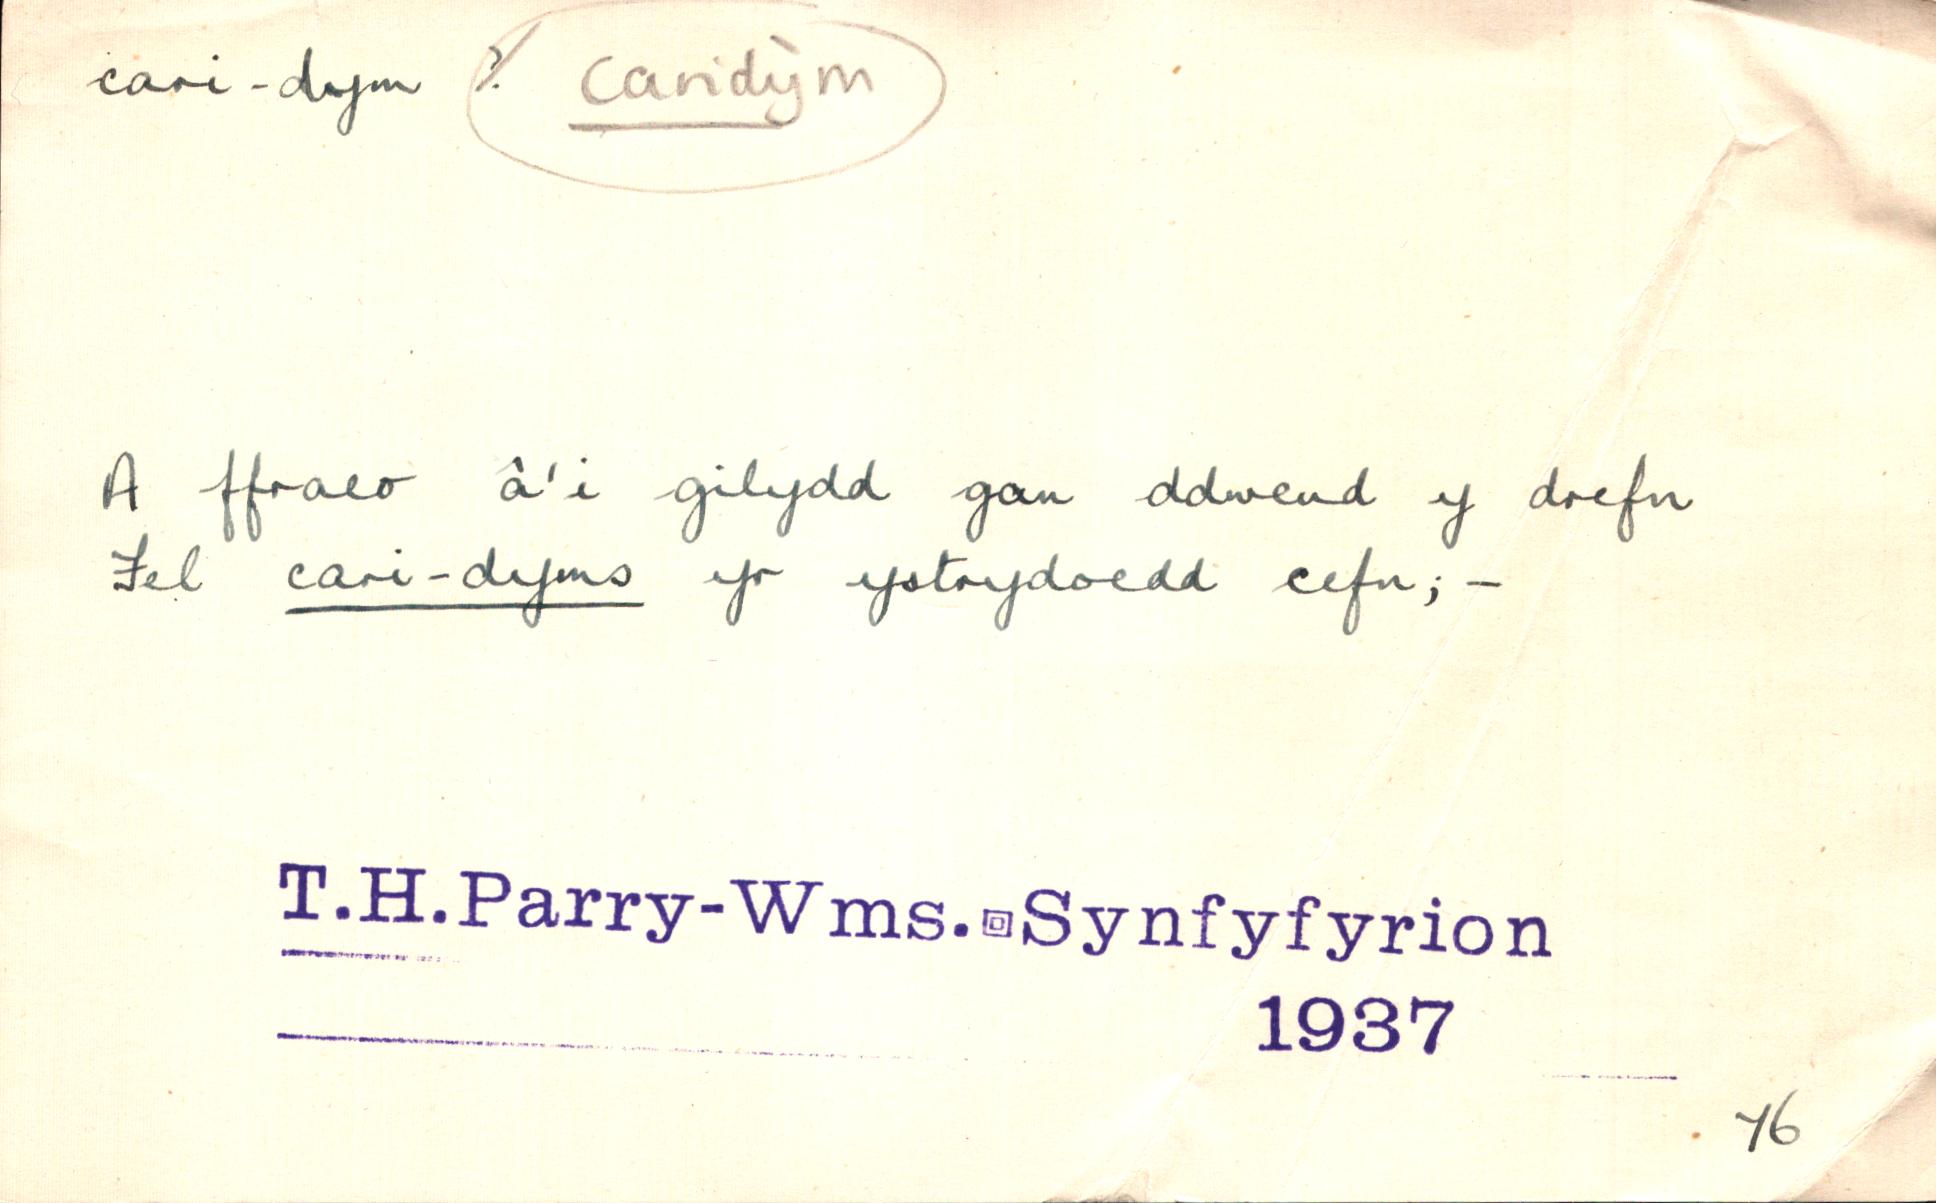 cari-dym ? caridỳm
A ffraeo â'i gilydd gan ddweud y drefn
Fel cari-dyms yr ystrydoedd cefn; –
T.H.Parry-Wms. Synfyfyrion
1937
76